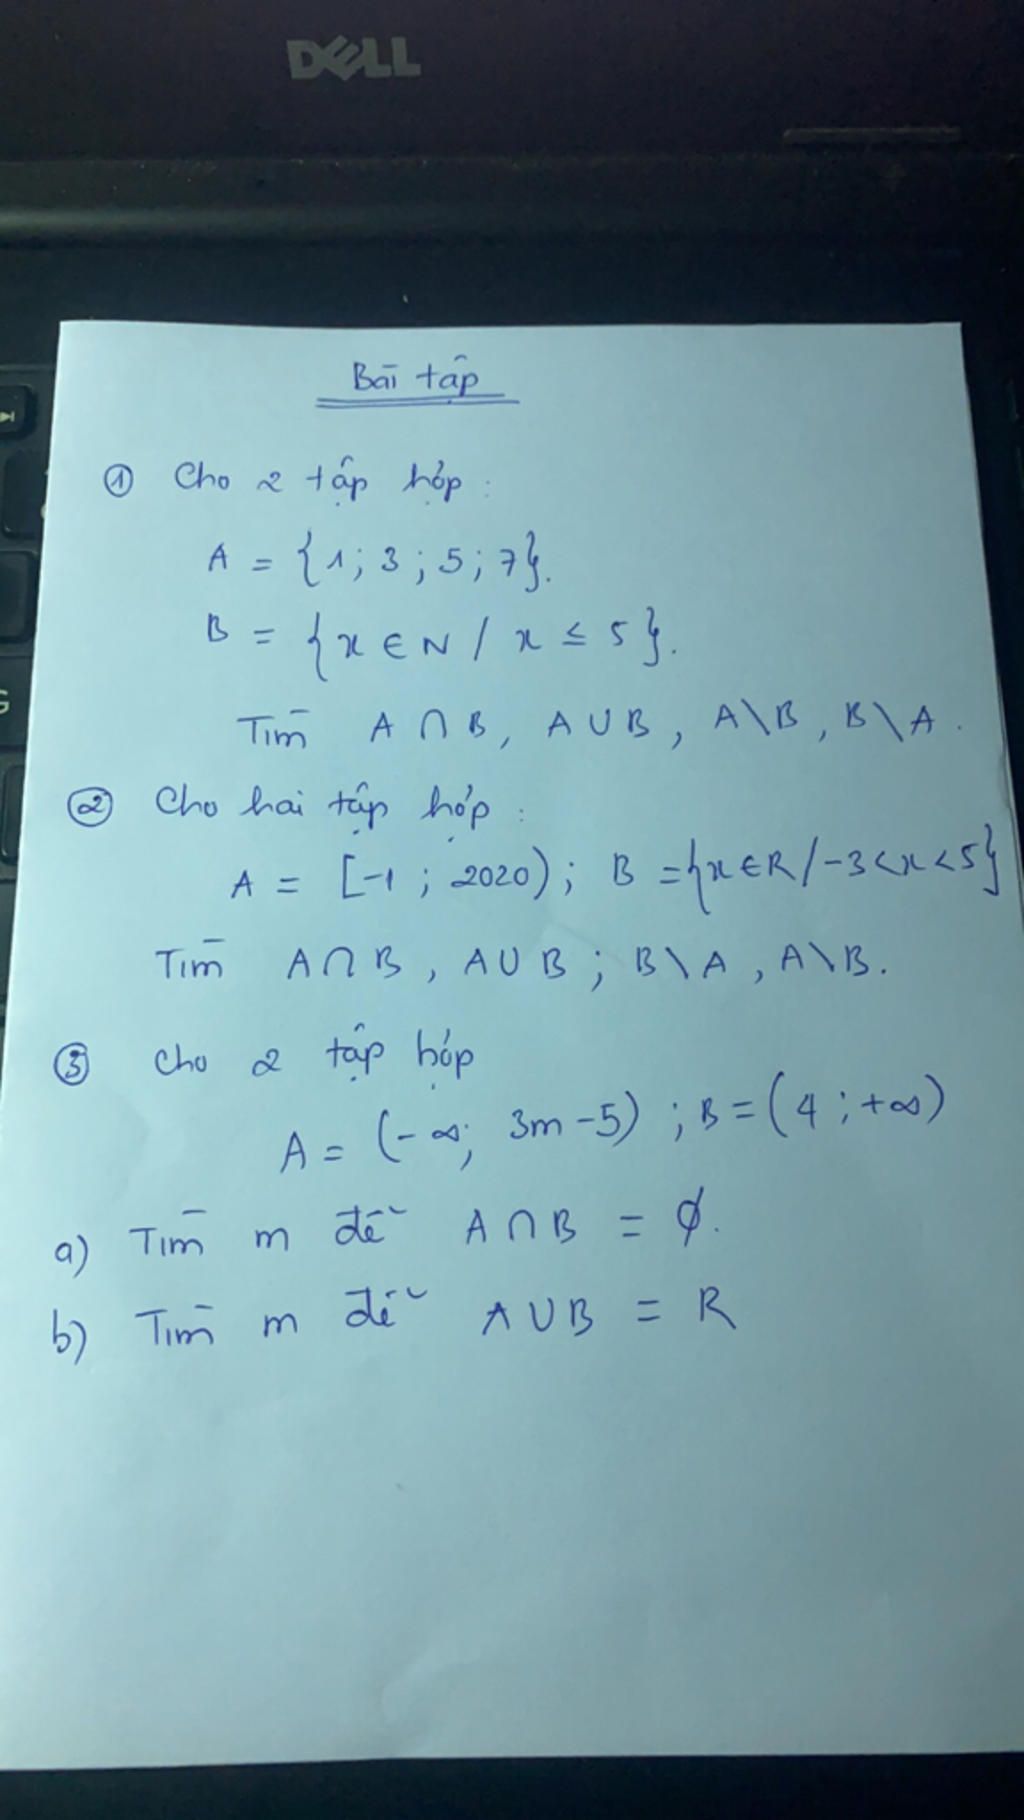 DELL
Bài tập
① Cho 2 tập hợp :
A = {1; 3; 5; 7}.
B = {x ∈ N / x ≤ 5}.
Tìm A ∩ B, A ∪ B, A \ B, B \ A.
② Cho hai tập hợp :
A = [-1 ; 2020) ; B = {x ∈ R / -3 < x < 5}
Tìm A ∩ B, A ∪ B ; B \ A, A \ B.
③ Cho 2 tập hợp
A = (-∞; 3m -5) ; B = (4 ; +∞)
a) Tìm m để A ∩ B = ∅.
b) Tìm m để A ∪ B = R